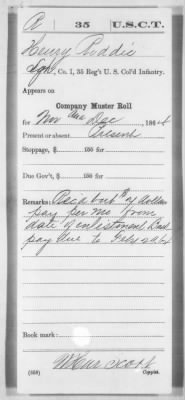 R 35 U.S.C.T.
Henry Riddic
Sgt, Co. I, 35 Reg't U.S. Col'd Infantry.
Appears on
Company Muster Roll
for Nov and Dec, 1864
Present or absent, Present
Stoppage, $ 100 for
Due Gov't, $ 100 for
Remarks: Paid but $7 dollars
pay per mo from
date of enlistment Bal
pay due to Feb 29 64
Book mark:
Wilbur Scott
(359) Copyist.